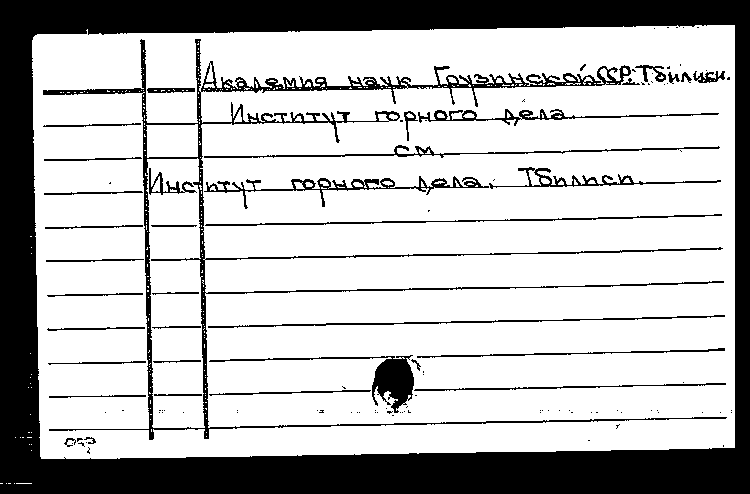 Академия наук Грузинской ССР. Тбилиси.
Институт горного дела.
см.
Институт горного дела. Тбилиси.